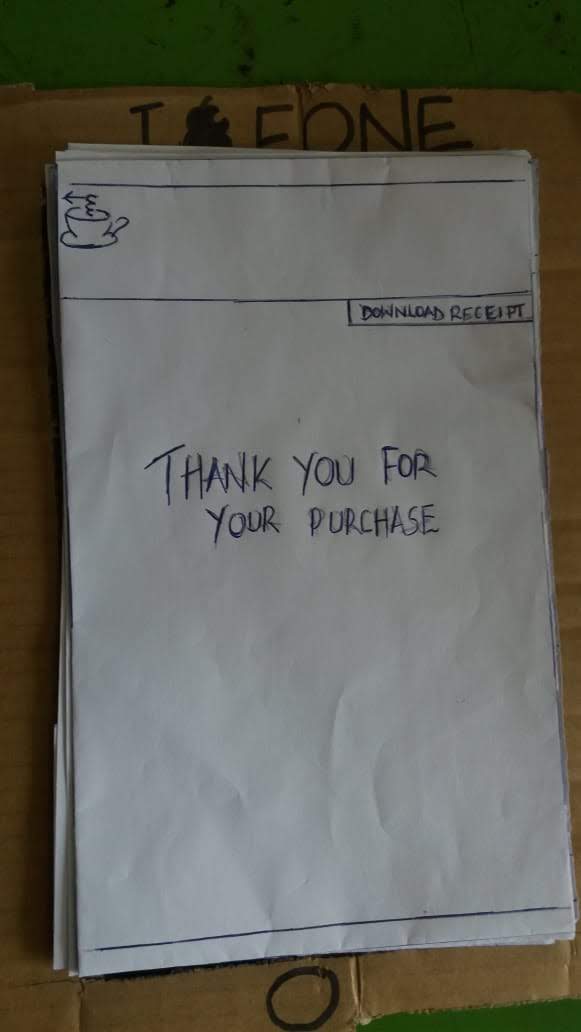 I FONE
DOWNLOAD RECEIPT
THANK YOU FOR
YOUR PURCHASE